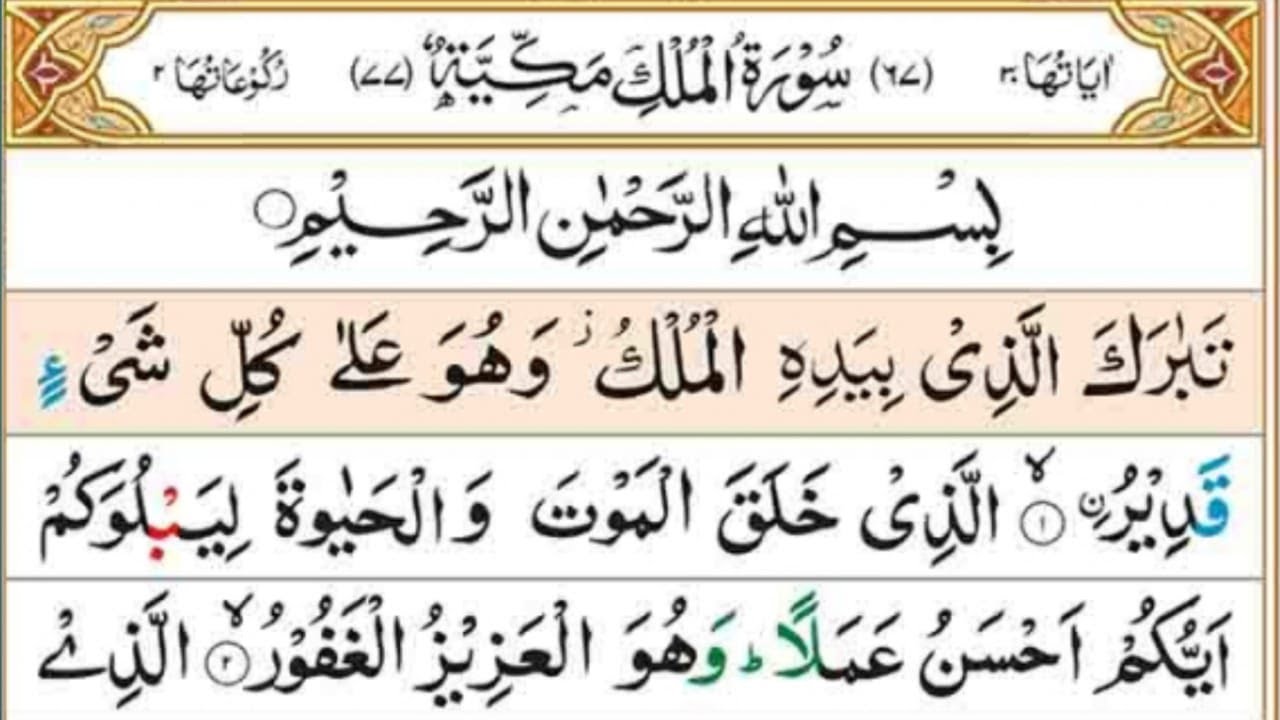 اٰیَاتُهَا ۳۰ (٦٧) سُوْرَةُ الْمُلْكِ مَكِّیَّةٌ (٧٧) رُكُوْعَاتُهَا ۲
بِسْمِ اللّٰهِ الرَّحْمٰنِ الرَّحِیْمِ ○
تَبٰرَكَ الَّذِیْ بِیَدِهِ الْمُلْكُ ؗ وَهُوَ عَلٰى كُلِّ شَیْءٍ
قَدِیْرُ ۨ ۙ﴿۱﴾ الَّذِیْ خَلَقَ الْمَوْتَ وَالْحَیٰوةَ لِیَبْلُوَكُمْ
اَیُّكُمْ اَحْسَنُ عَمَلًا ؕ وَهُوَ الْعَزِیْزُ الْغَفُوْرُ ۙ﴿۲﴾ الَّذِیْ